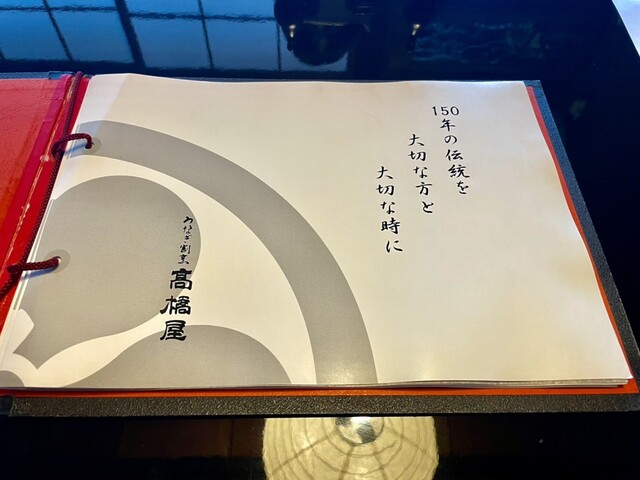 150年の伝統を
大切な方と
大切な時に
うなぎ・割烹
髙橋屋